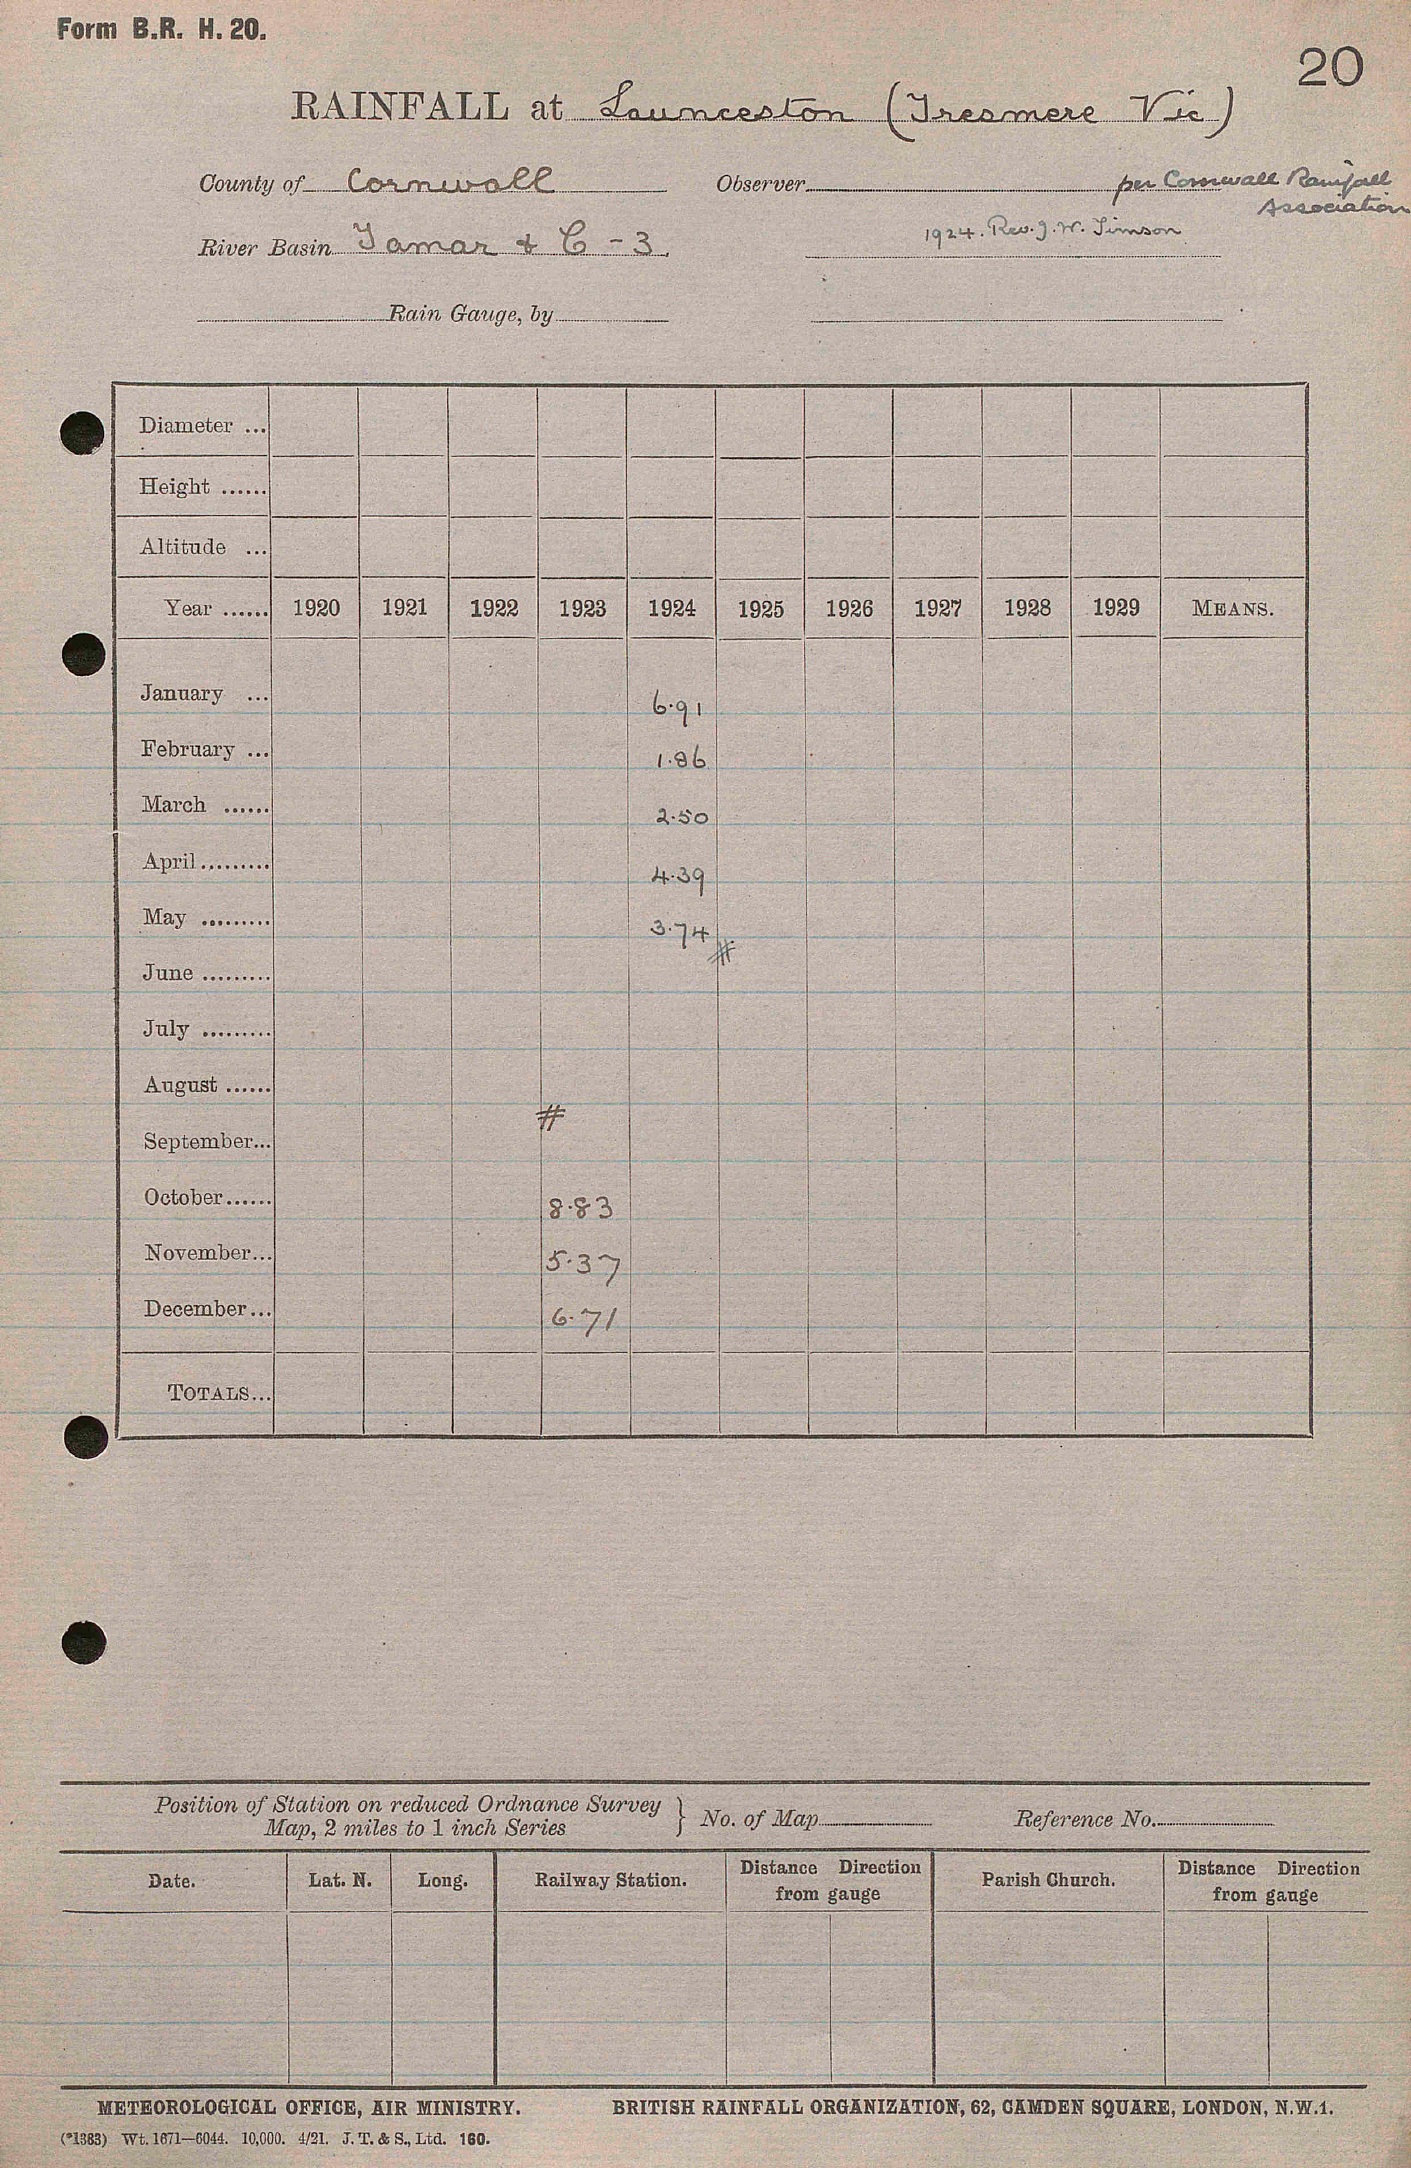 Form B.R. H. 20.
20
RAINFALL at Launceston (Tresmere Vic)
County of Cornwall Observer per Cornwall Rainfall
Association
River Basin Tamar & C - 3. 1924. Rev. J. W. Timson
Rain Gauge, by
Diameter ...
Height ......
Altitude ...
Year ...... 1920 1921 1922 1923 1924 1925 1926 1927 1928 1929 MEANS.
January ... 6.91
February ... 1.86
March ...... 2.50
April ......... 4.39
May ......... 3.74
#
June .........
July .........
August ......
#
September...
October...... 8.83
November... 5.37
December... 6.71
TOTALS...
Position of Station on reduced Ordnance Survey
Map, 2 miles to 1 inch Series } No. of Map Reference No.
Date. Lat. N. Long. Railway Station. Distance Direction from gauge Parish Church. Distance Direction from gauge
METEOROLOGICAL OFFICE, AIR MINISTRY. BRITISH RAINFALL ORGANIZATION, 62, CAMDEN SQUARE, LONDON, N.W.1.
(*1383) Wt. 1671—6044. 10,000. 4/21. J. T. & S., Ltd. 160.